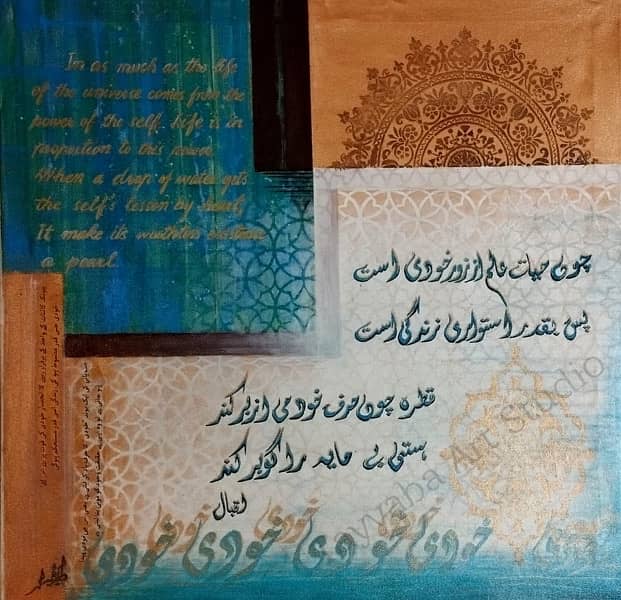 In as much as the life
of the universe comes from the
power of the self, life is in
proportion to this power
When a drop of water gets
the self's lesson by heart,
It make its worthless existence
a pearl.
چون حیات عالم از زور خودی است
پس بقدر استواری زندگی است
قطره چون حرف خودی ازبر کند
ہستئی بے مایہ را گوہر کند
اقبال
خودی خودی خودی خودی خودی
Ayyaba Art Studio